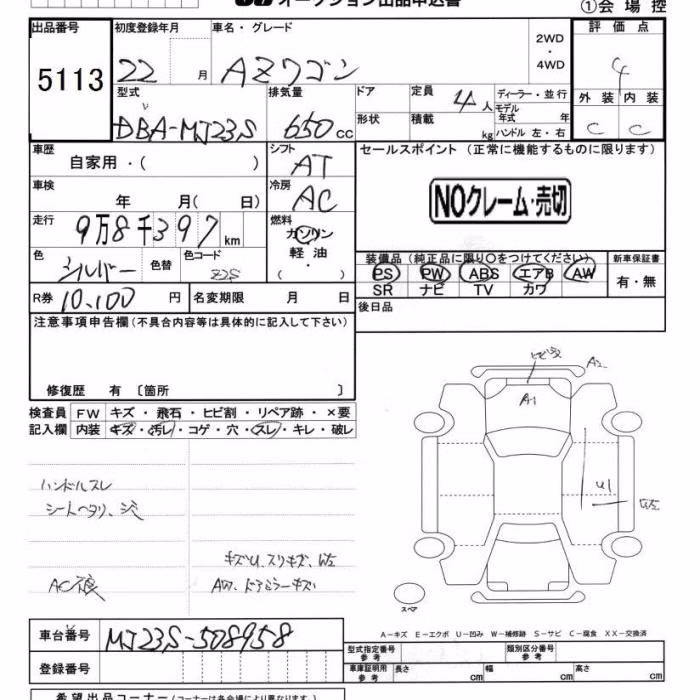 オークション出品申込書
①会場控
出品番号
5113
初度登録年月
22 月
車名・グレード
AZワゴン
2WD
・
4WD
評価点
4
外装 内装
C C
型式
DBA-MJ23S
排気量
650 cc
ドア
形状
定員
4 人
積載
kg
ディーラー・並行
モデル年式 年
ハンドル 左・右
車歴
自家用・( )
シフト
AT
セールスポイント (正常に機能するものに限ります)
NOクレーム・売切
車検
年 月( 日)
冷房
AC
走行
9万8千397 km
燃料
ガソリン
軽油
・
( )
色
シルバー
色替
色コード
Z2S
装備品 (純正品に限り○をつけてください)
PS PW ABS エアB AW
SR ナビ TV カワ
新車保証書
有・無
R券 10,100 円
名変期限 月 日
後日品
注意事項申告欄 (不具合内容等は具体的に記入して下さい)
修復歴 有 〔箇所 〕
検査員 FW キズ・飛石・ヒビ割・リペア跡・×要
記入欄 内装 キズ・汚レ・コゲ・穴・スレ・キレ・破レ
A2
A1
U1
W2
ハンドルスレ
シートヘタリ、シミ
キズU、スリキズ、W2
AC不良
AW、ドアミラーキズ
スペア
A-キズ E-エクボ U-凹み W-補修跡 S-サビ C-腐食 XX-交換済
車台番号 MJ23S-508958
登録番号
型式指定番号 参考
類別区分番号 参考
車庫証明用 参考
長さ cm 幅 cm 高さ cm
希望出品コーナー (コーナー名は各会場により異なります。)